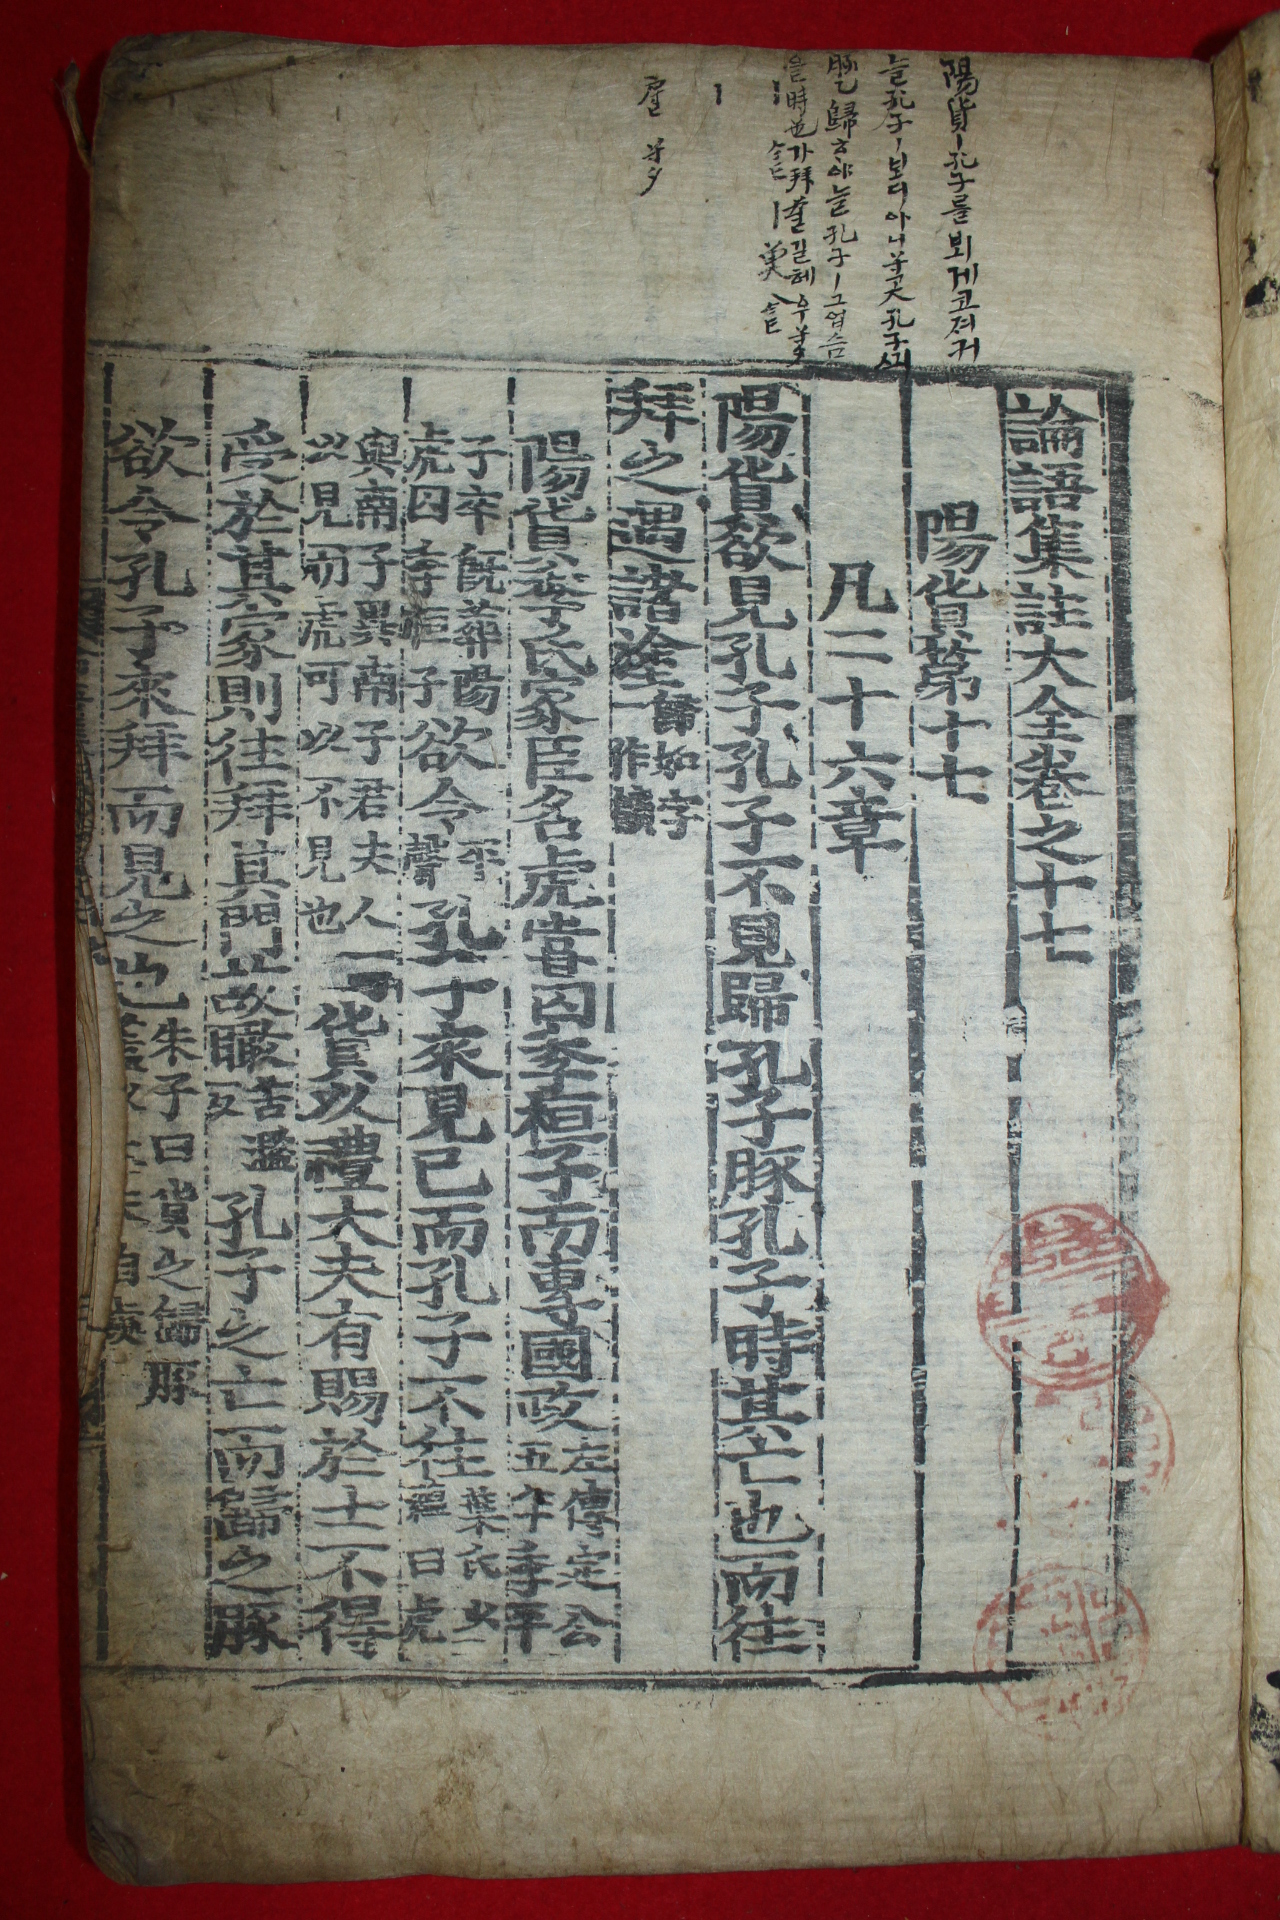 陽貨ㅣ孔子를뵈게코져커
늘孔子ㅣ보디아니신大孔子ᄭᅴ
豚乙歸ᄒᆞ야늘孔子ㅣ그업슴
을時也가拜
論語集註大全卷之十七
陽貨第十七
凡二十六章
陽貨欲見孔子孔子不見歸孔子豚孔子時其亡也而往
拜之遇諸塗歸如字一作饋
陽貨季氏家臣名虎嘗囚季桓子而專國政左傳定公五年季平
子卒旣葬陽虎囚季桓子欲令平聲孔子來見己而孔子不往葉氏少蘊曰虎
與南子異南子君夫人可以見而虎可以不見也貨以禮大夫有賜於士不得
受於其家則往拜其門故瞰苦濫反孔子之亡而歸之豚
欲令孔子來拜而見之也朱子曰貨之歸豚